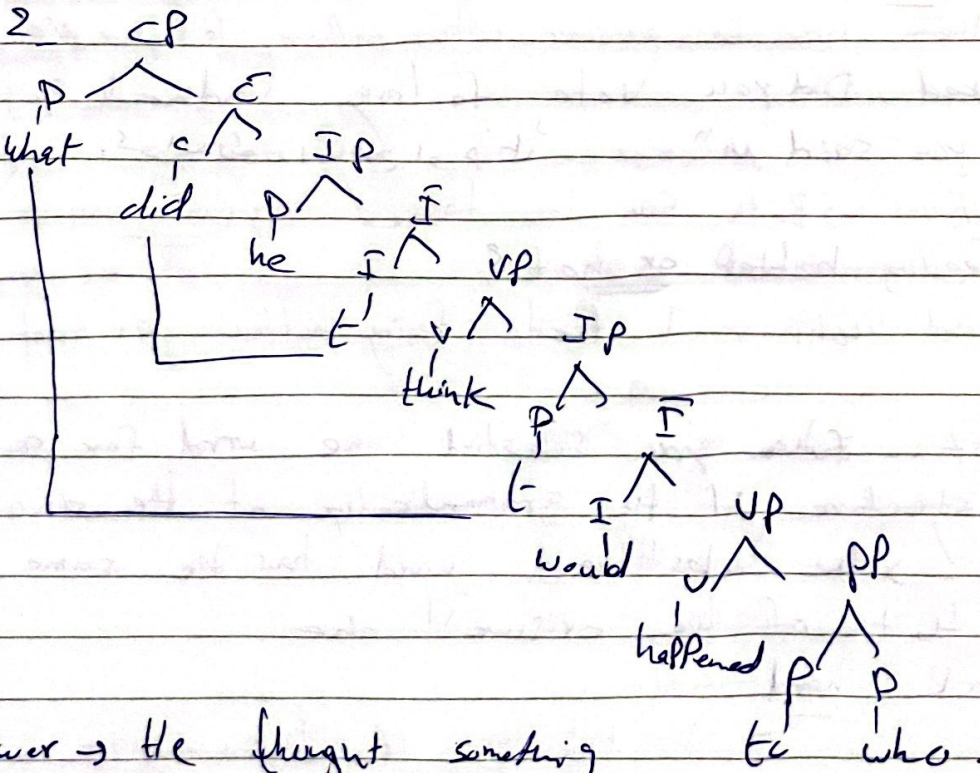 2 CP
D C̄
what C IP
did D Ī
he I VP
t' V IP
think D Ī
t I VP
would V PP
happened P D
to who
wer → He thought something